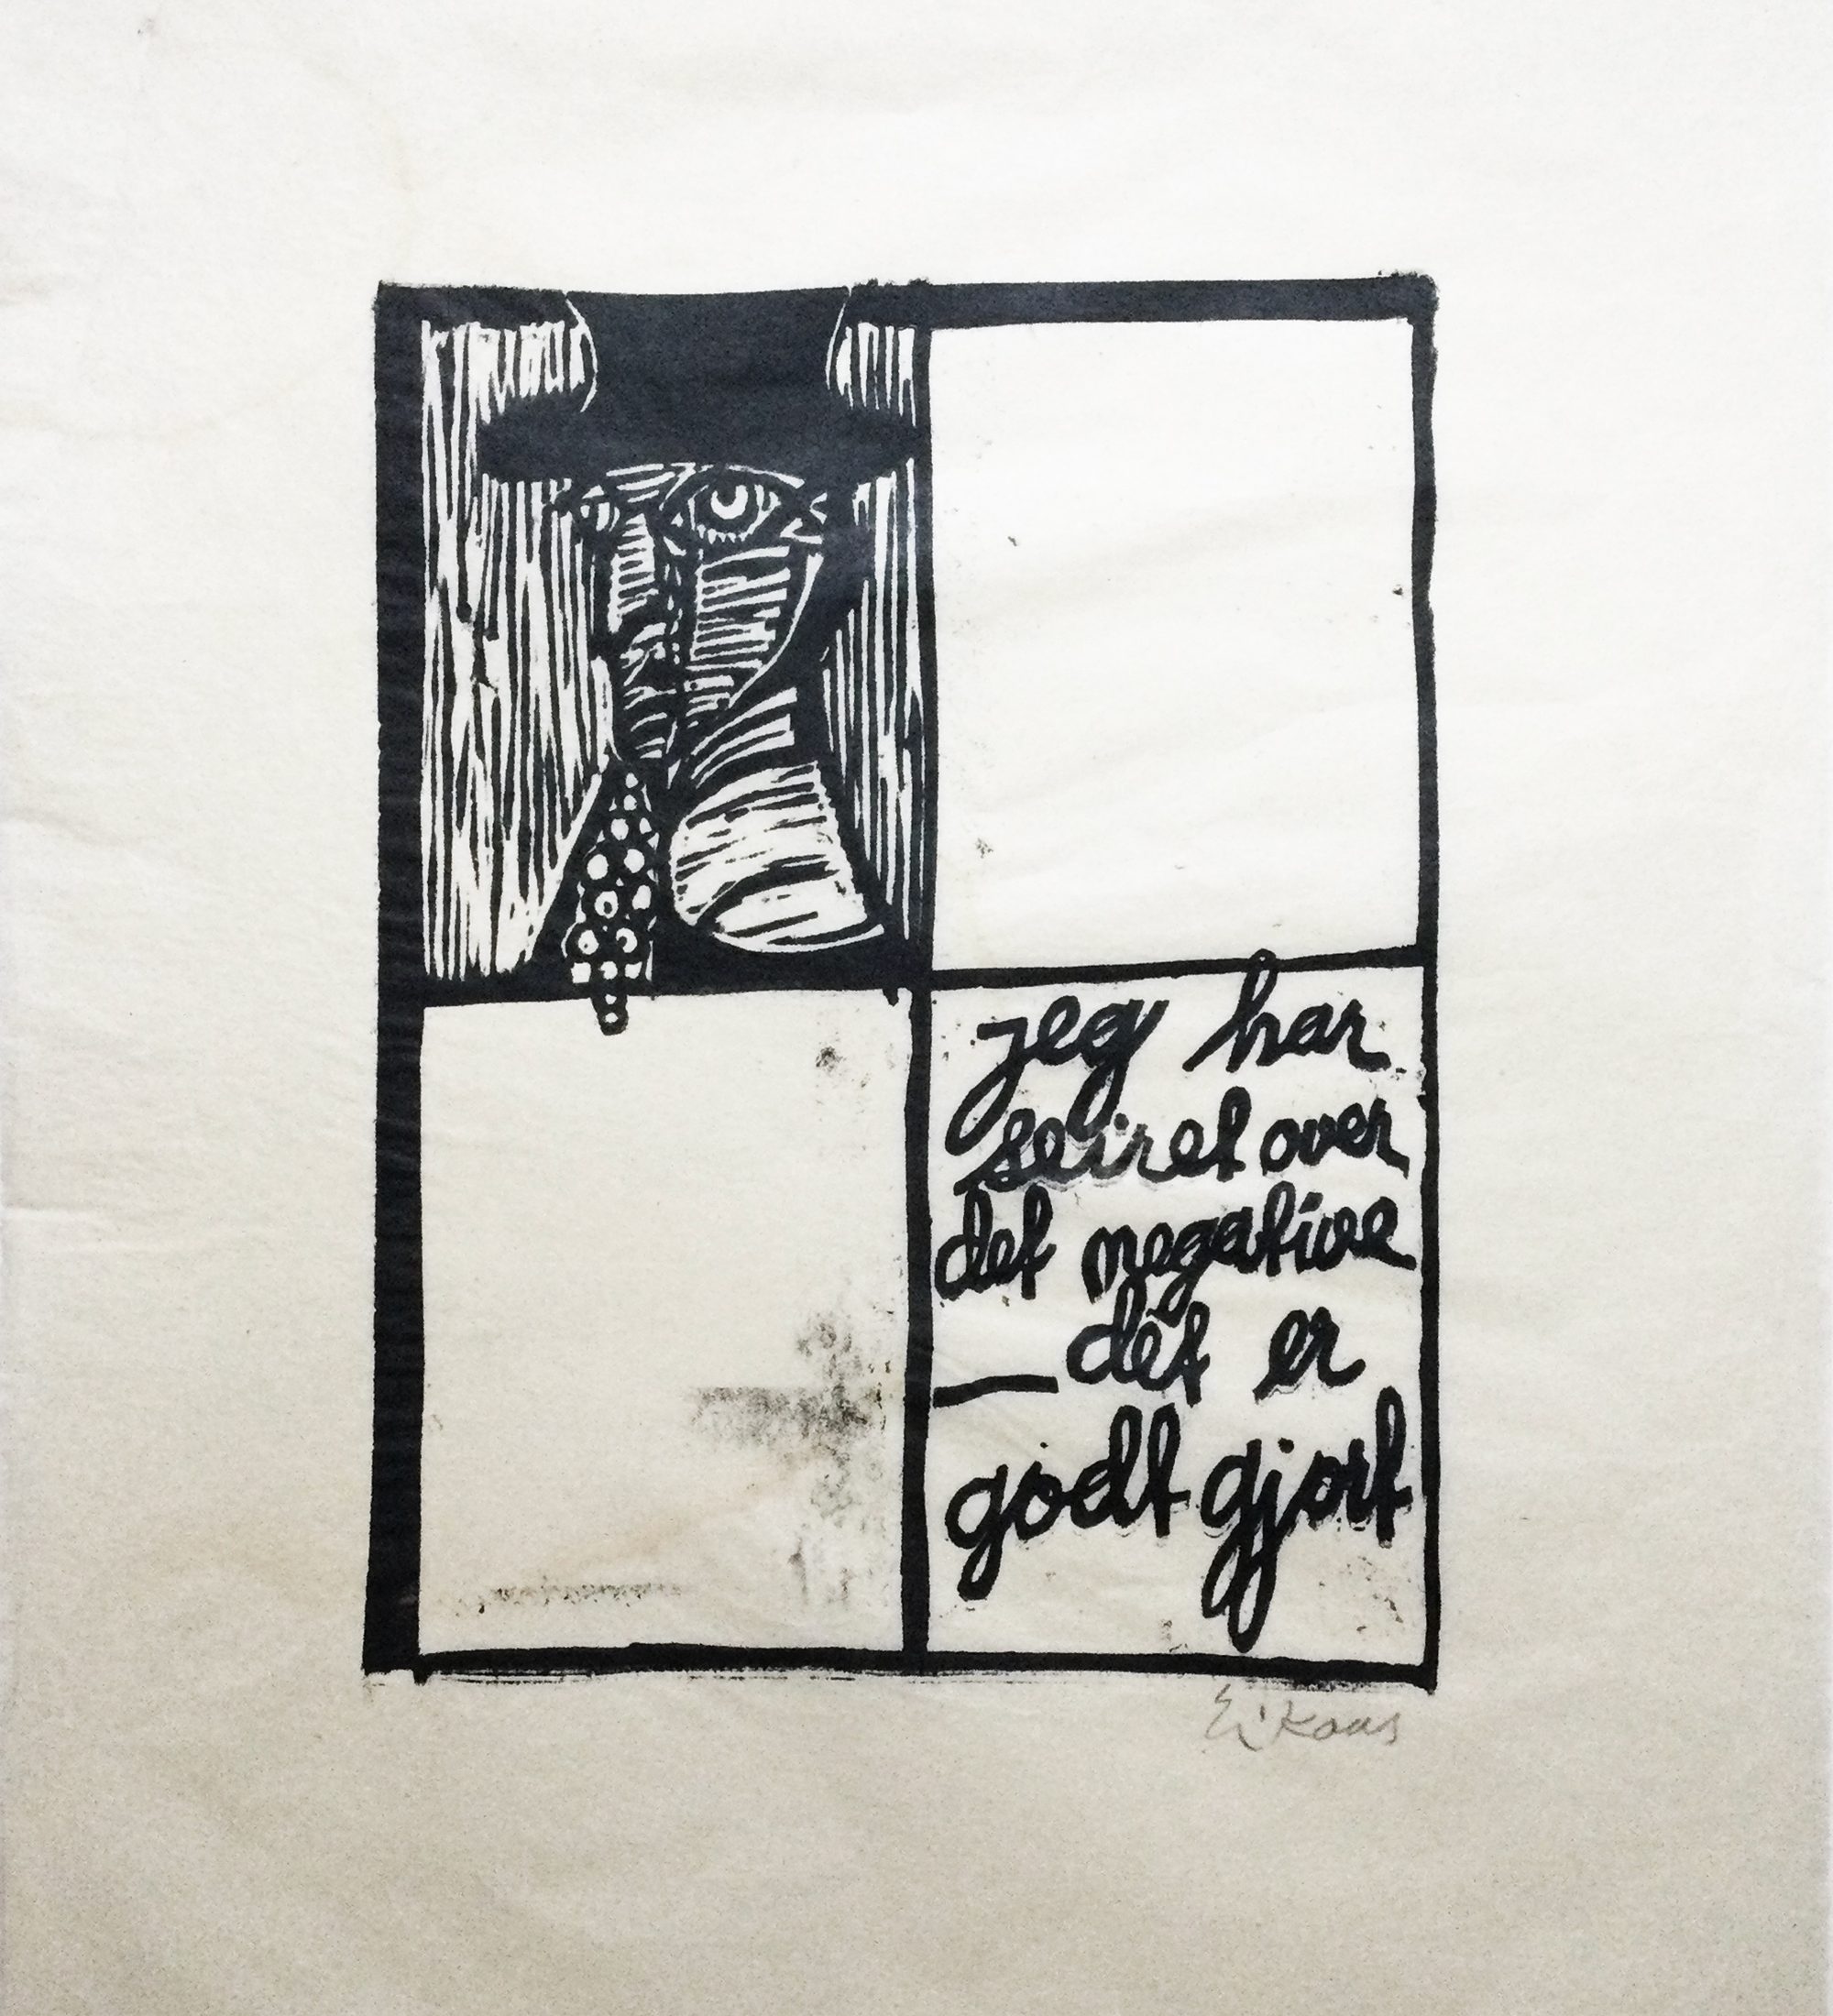 jeg har
seiret over
det negative
— det er
godt gjort
Ei Kaas